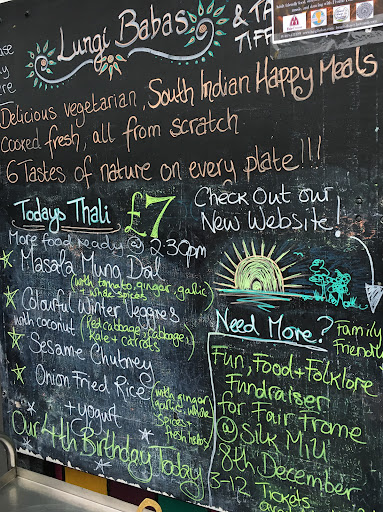 Lungi Babas
& TA
TIFF
Delicious vegetarian, South Indian Happy Meals
Cooked fresh, all from scratch
6 Tastes of nature on every plate!!!
Todays Thali £7
More food ready @ 2:30pm
Masala Mung Dal
(with tomato, ginger, garlic
+ whole spices)
Colourful Winter Veggies
with coconut (red cabbage, cabbage,
kale + carrots)
Sesame Chutney
Onion Fried Rice
(with ginger
garlic, whole
spices +
fresh herbs)
+ yogurt
Our 4th Birthday Today
Check Out our
New Website!
Need More?
Family
Friendly
Fun, Food + Folklore
Fundraiser
for Fair Frome
@ Silk Mill
8th December
3-12 Tickets